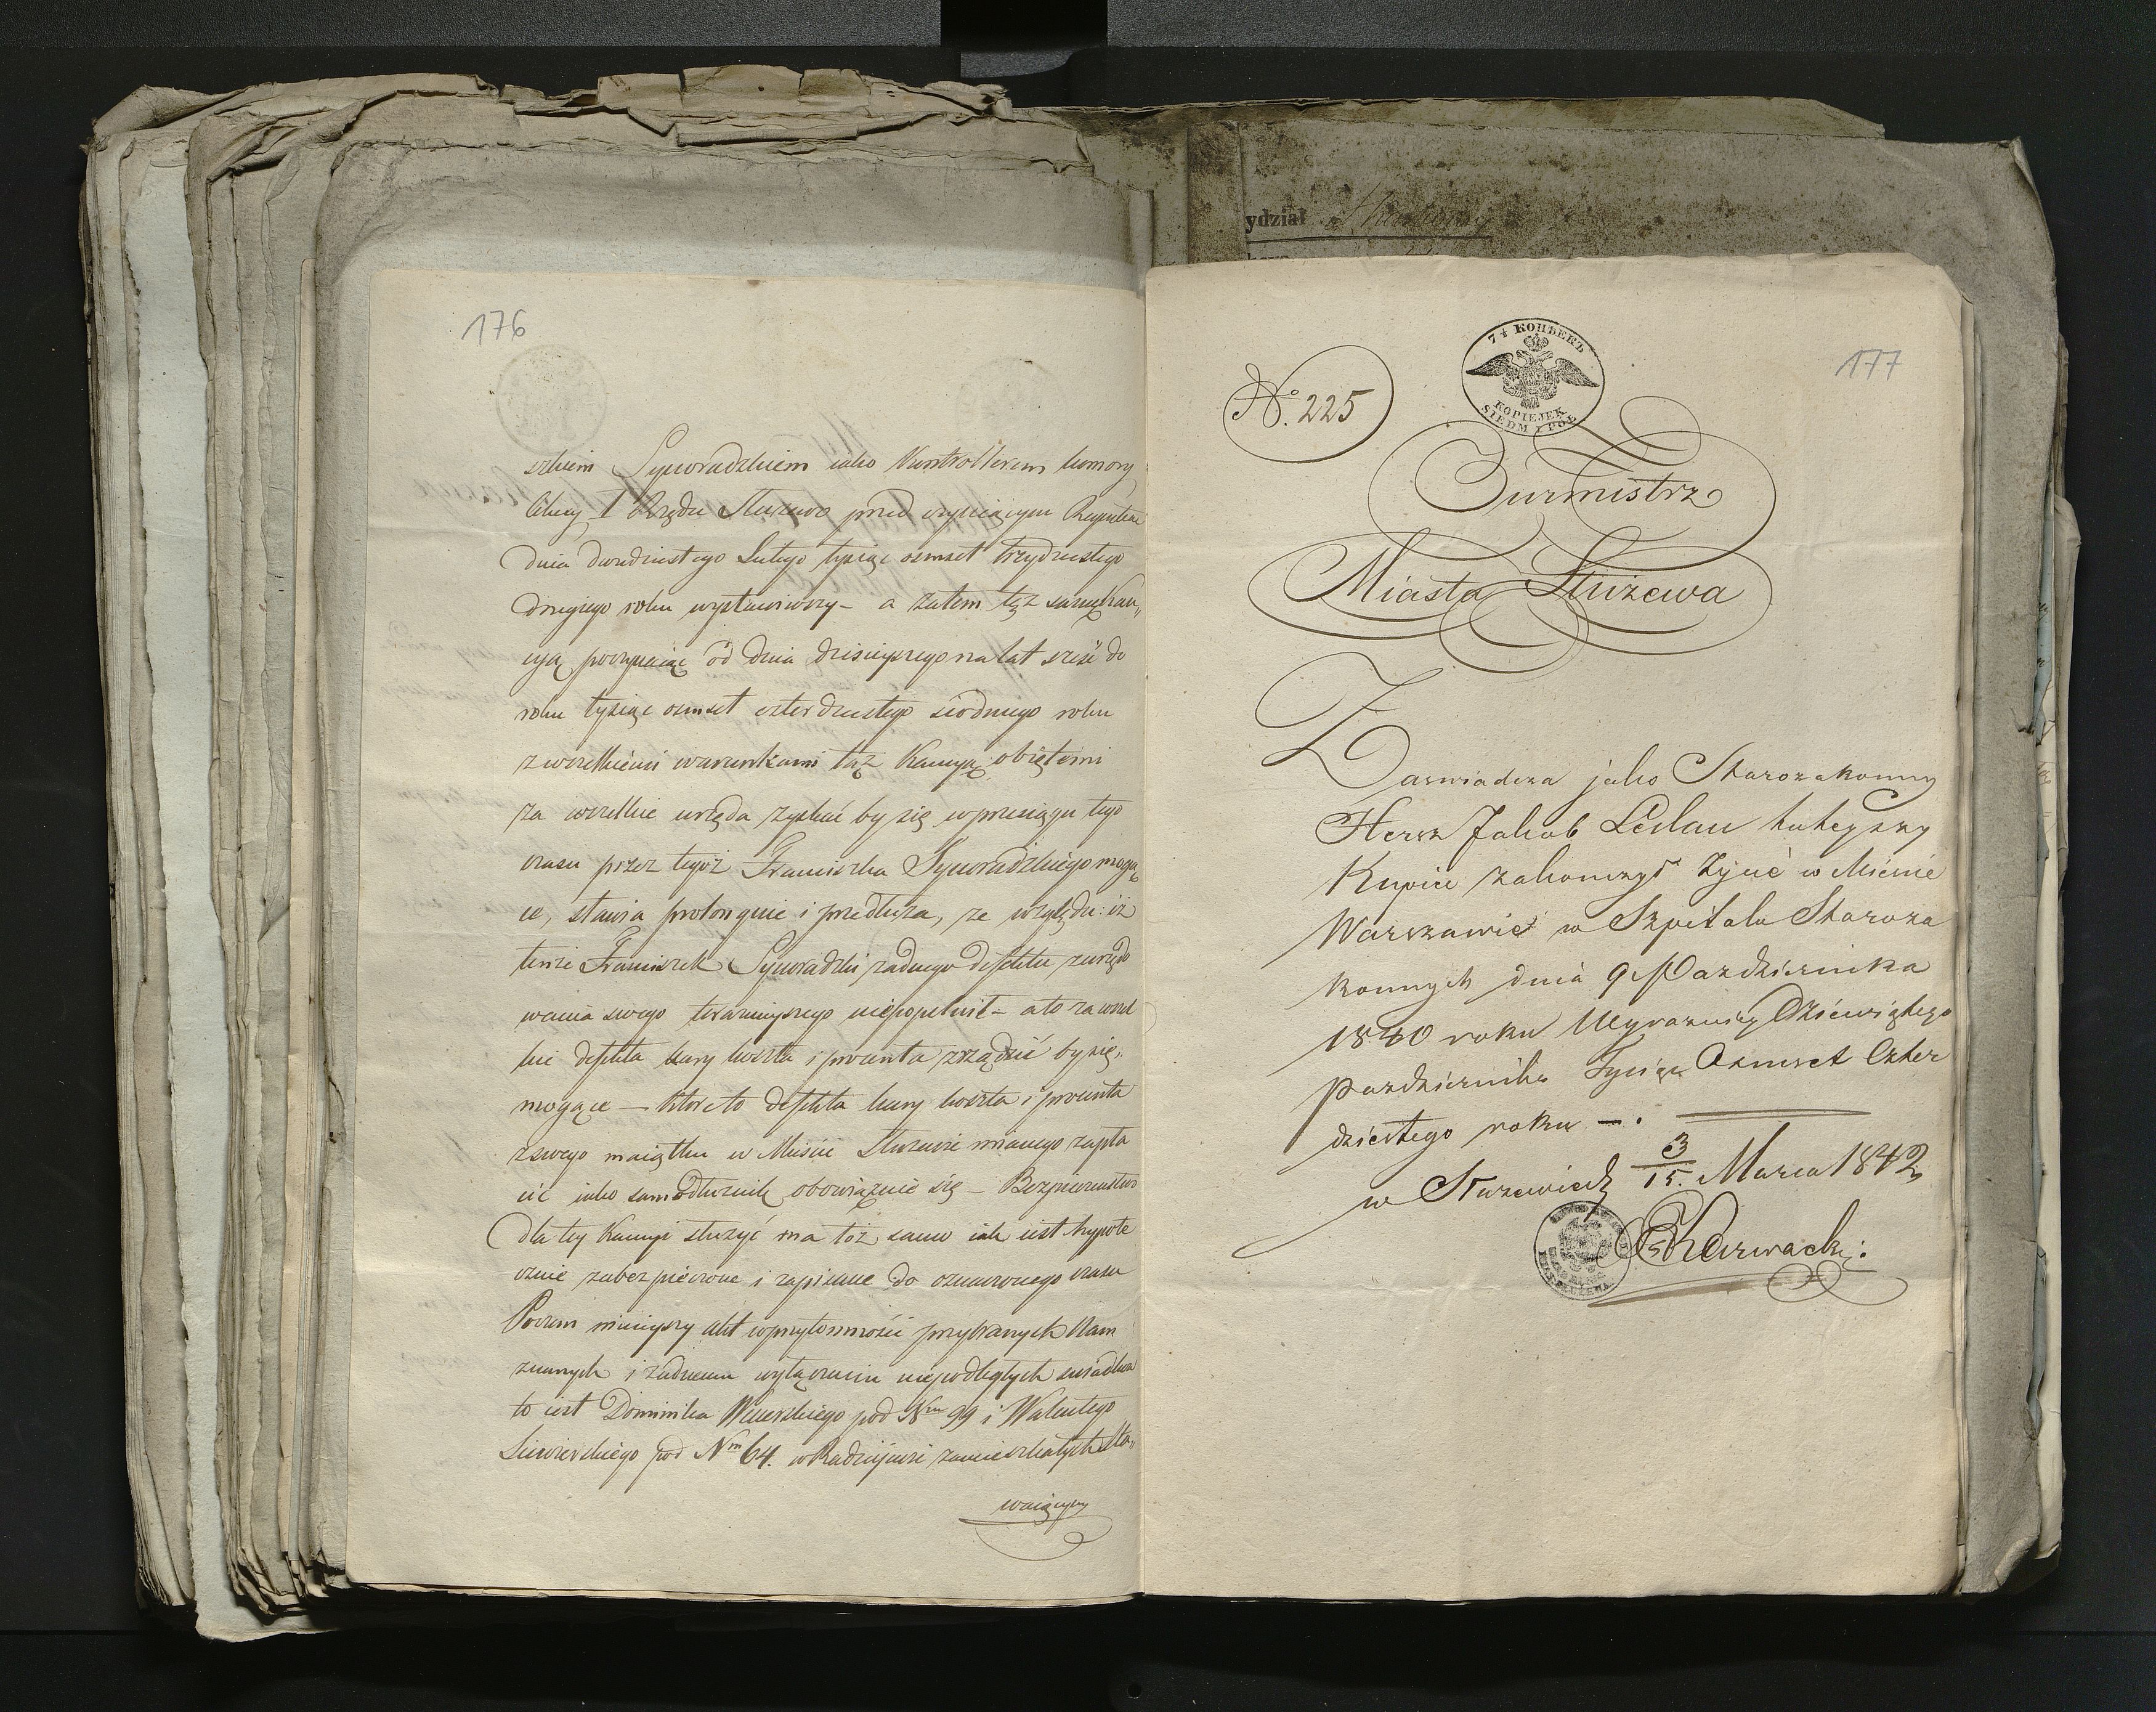 ydział
176
szkiem Syuoradzkiem iako Kontrollerem komory
Celney I Rzędu Służewo przed czyniącym Rejentem
dnia dwudziestego Lutego tysiąc osmset trzydziestego
drugiego roku wystawiwszy – a zatem tęż samę Kau„
cyą poczynaiąc od dnia dzisieyszego na lat sześć do
roku tysiąc osmset czterdziestego siodmego roku
z wszelkiemi warunkami tąż Kaucyą obiętemi
za wszelkie urzęda zyskać by się w przeciągu tego
czasu przez tegoż Franciszka Syuoradzkiego mogą
ce, stawia prolonguie i przedłuża, ze względu: iż
tenże Franciszek Syuoradzki żadnego defektu z urzędo
wania swego teraznieyszego niepopełnił – a to za wszel
kie defekta kary koszta i procenta zrządzić by się„
mogące – które to defekta kary koszta i procenta
z swego maiątku w Mieście Służewie mianego zapła
cić iako samodłużnik obowiązuie się – Bezpieczeństwo
dla tey Kaucyi służyć ma toż samo iak iest hypote
cznie zabezpieczone i zapisane do oznaczonego czasu
Poczem ninieyszy akt w przytomności przybranych Nam
znanych i żadnemu wyłączeniu niepodległych świadków
to iest Dominika pod Nrm 99 i Walentego
pod Nrm 64. w Radziejowie zamieszkałych sta„
waiącym
177
7½ КОПѢЕКЪ
KOPIEJEK
SIEDM I PÓŁ
N. 225
Burmistrz
Miasta Służewa
Zaswiadcza jako Starozakonny
Hersz Jakob Leslau tuteyszy
Kupiec zakonczył Zycie w Miescie
Warszawie w Szpitalu Staroza
konnych dnia 9 Pazdziernika
1840 roku Wyrazniey Dziewiątego
Pazdziernika Tysiąc Osmset Czter
dziestego roku –.
w Służewie d 3/15. Marca 1842
Karwacki